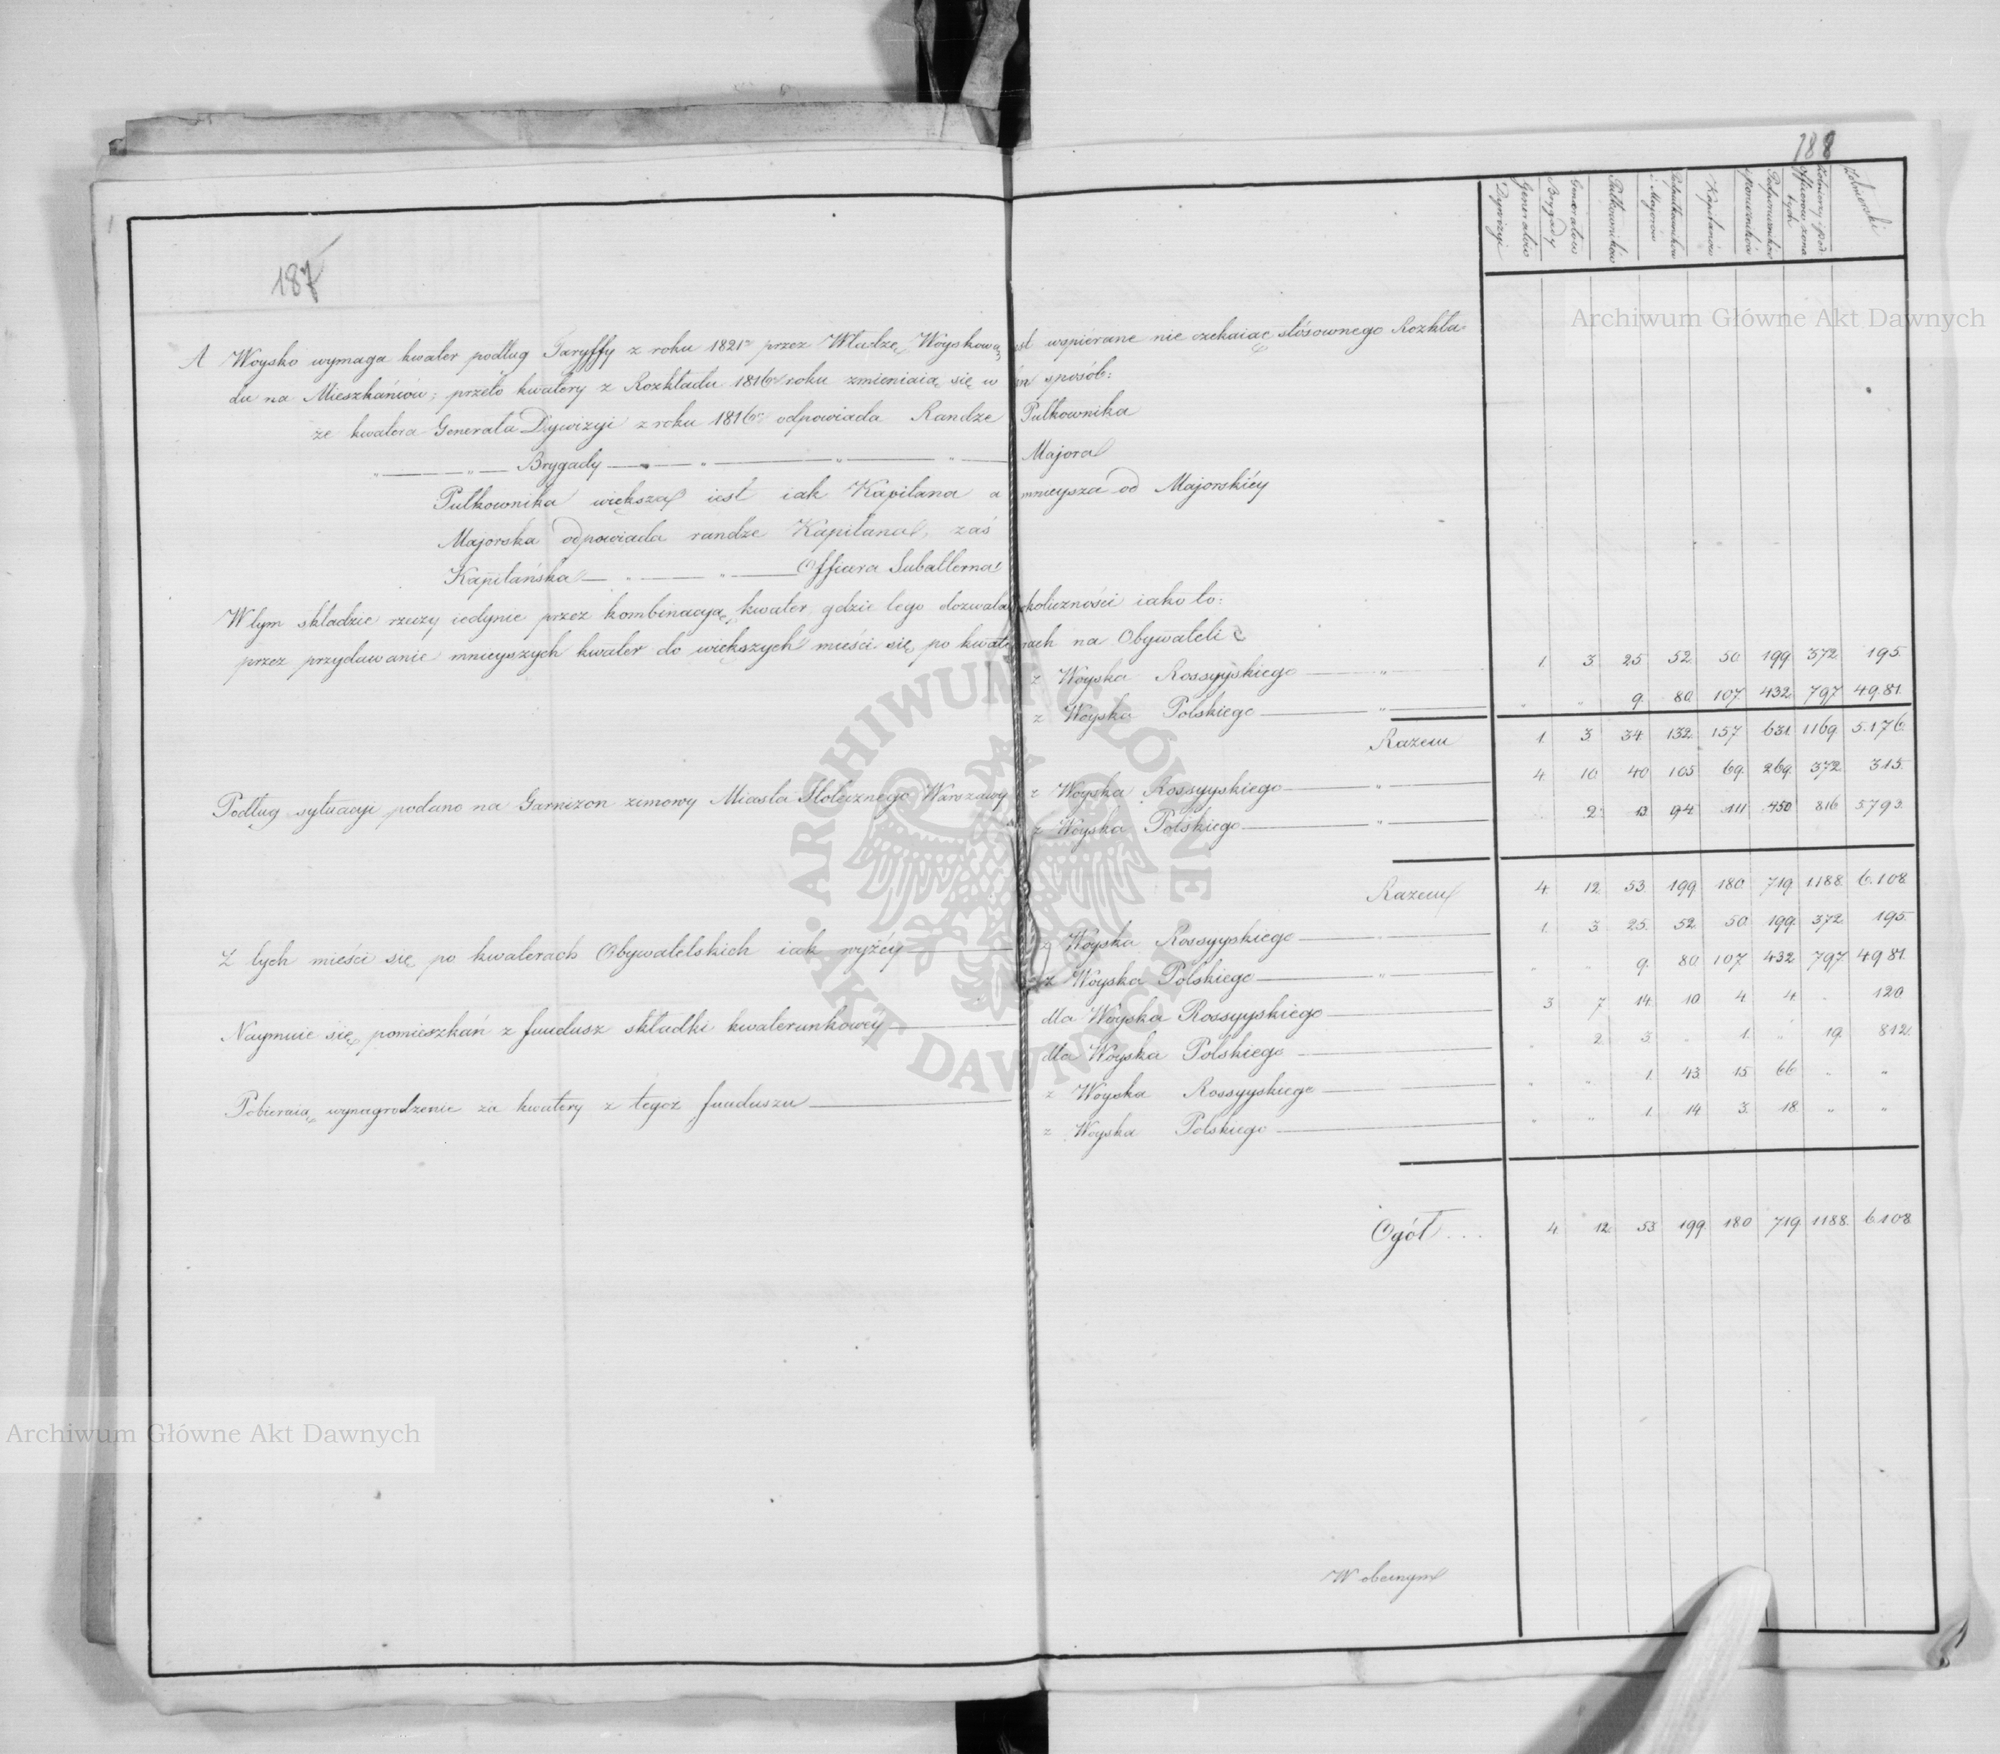 187
188
Generałów Dywizyi
Generałów Brygady
Pułkowników
Podpułkowników i Majorów
Kapitanów
Podporuczników i poruczników
Żołnierzy i pod officerów żonatych
Żołnierski
A Woysko wymaga kwater podług Taryffy z roku 1821º przez Władzę Woyskową iest wspierane nie czekaiąc stósownego Rozkła-
du na Mieszkańców; przeto kwatery z Rozkładu 1816º roku zmieniaią się w ten sposób:
że kwatera Generała Dywizyi z roku 1816º odpowiada Randze Pułkownika
" " Brygady " " " Majora
Pułkownika większa iest iak Kapitana a mnieysza od Majorskiéy
Majorska odpowiada randze Kapitana, zaś
Kapitańska " " Officera Subalterna
W tym składzie rzeczy iedynie przez kombinacyą kwater, gdzie tego dozwalaią okoliczności iako to:
przez przydawanie mnieyszych kwater do większych mieści się po kwaterach na Obywateli
z Woyska Rossyyskiego " 1. 3. 25. 52. 50. 199. 372. 195.
z Woyska Polskiego " " " 9. 80. 107. 432. 797. 4981.
Razem 1. 3. 34. 132. 157. 631. 1169. 5.176.
Podług sytuacyi podano na Garnizon zimowy Miasta Stołecznego Warszawy z Woyska Rossyyskiego " 4 10. 40. 105. 69. 269. 372. 315.
z Woyska Polskiego " 2. 13. 94. 111. 450 816 5793.
Razem 4. 12. 53. 199. 180. 719. 1188. 6.108
Z tych mieści się po kwaterach Obywatelskich iak wyżéy z Woyska Rossyyskiego " 1. 3. 25. 52. 50. 199. 372. 195.
z Woyska Polskiego " " " 9. 80. 107. 432. 797. 4981.
Naymuie się pomieszkań z fundusz składki kwaterunkowéy dla Woyska Rossyyskiego 3 7 14. 10. 4 4. " 120.
dla Woyska Polskiego " 2. 3. " 1. " 19. 812.
Pobieraią wynagrodzenie za kwatery z tegoż funduszu z Woyska Rossyyskiego " " 1. 43. 15. 66 " "
z Woyska Polskiego " " 1. 14. 3. 18. " "
Ogół . . . 4. 12. 53. 199. 180 719. 1188. 6108.
W obecnym
Archiwum Główne Akt Dawnych
Archiwum Główne Akt Dawnych
ARCHIWUM GŁÓWNE • AKT DAWNYCH •